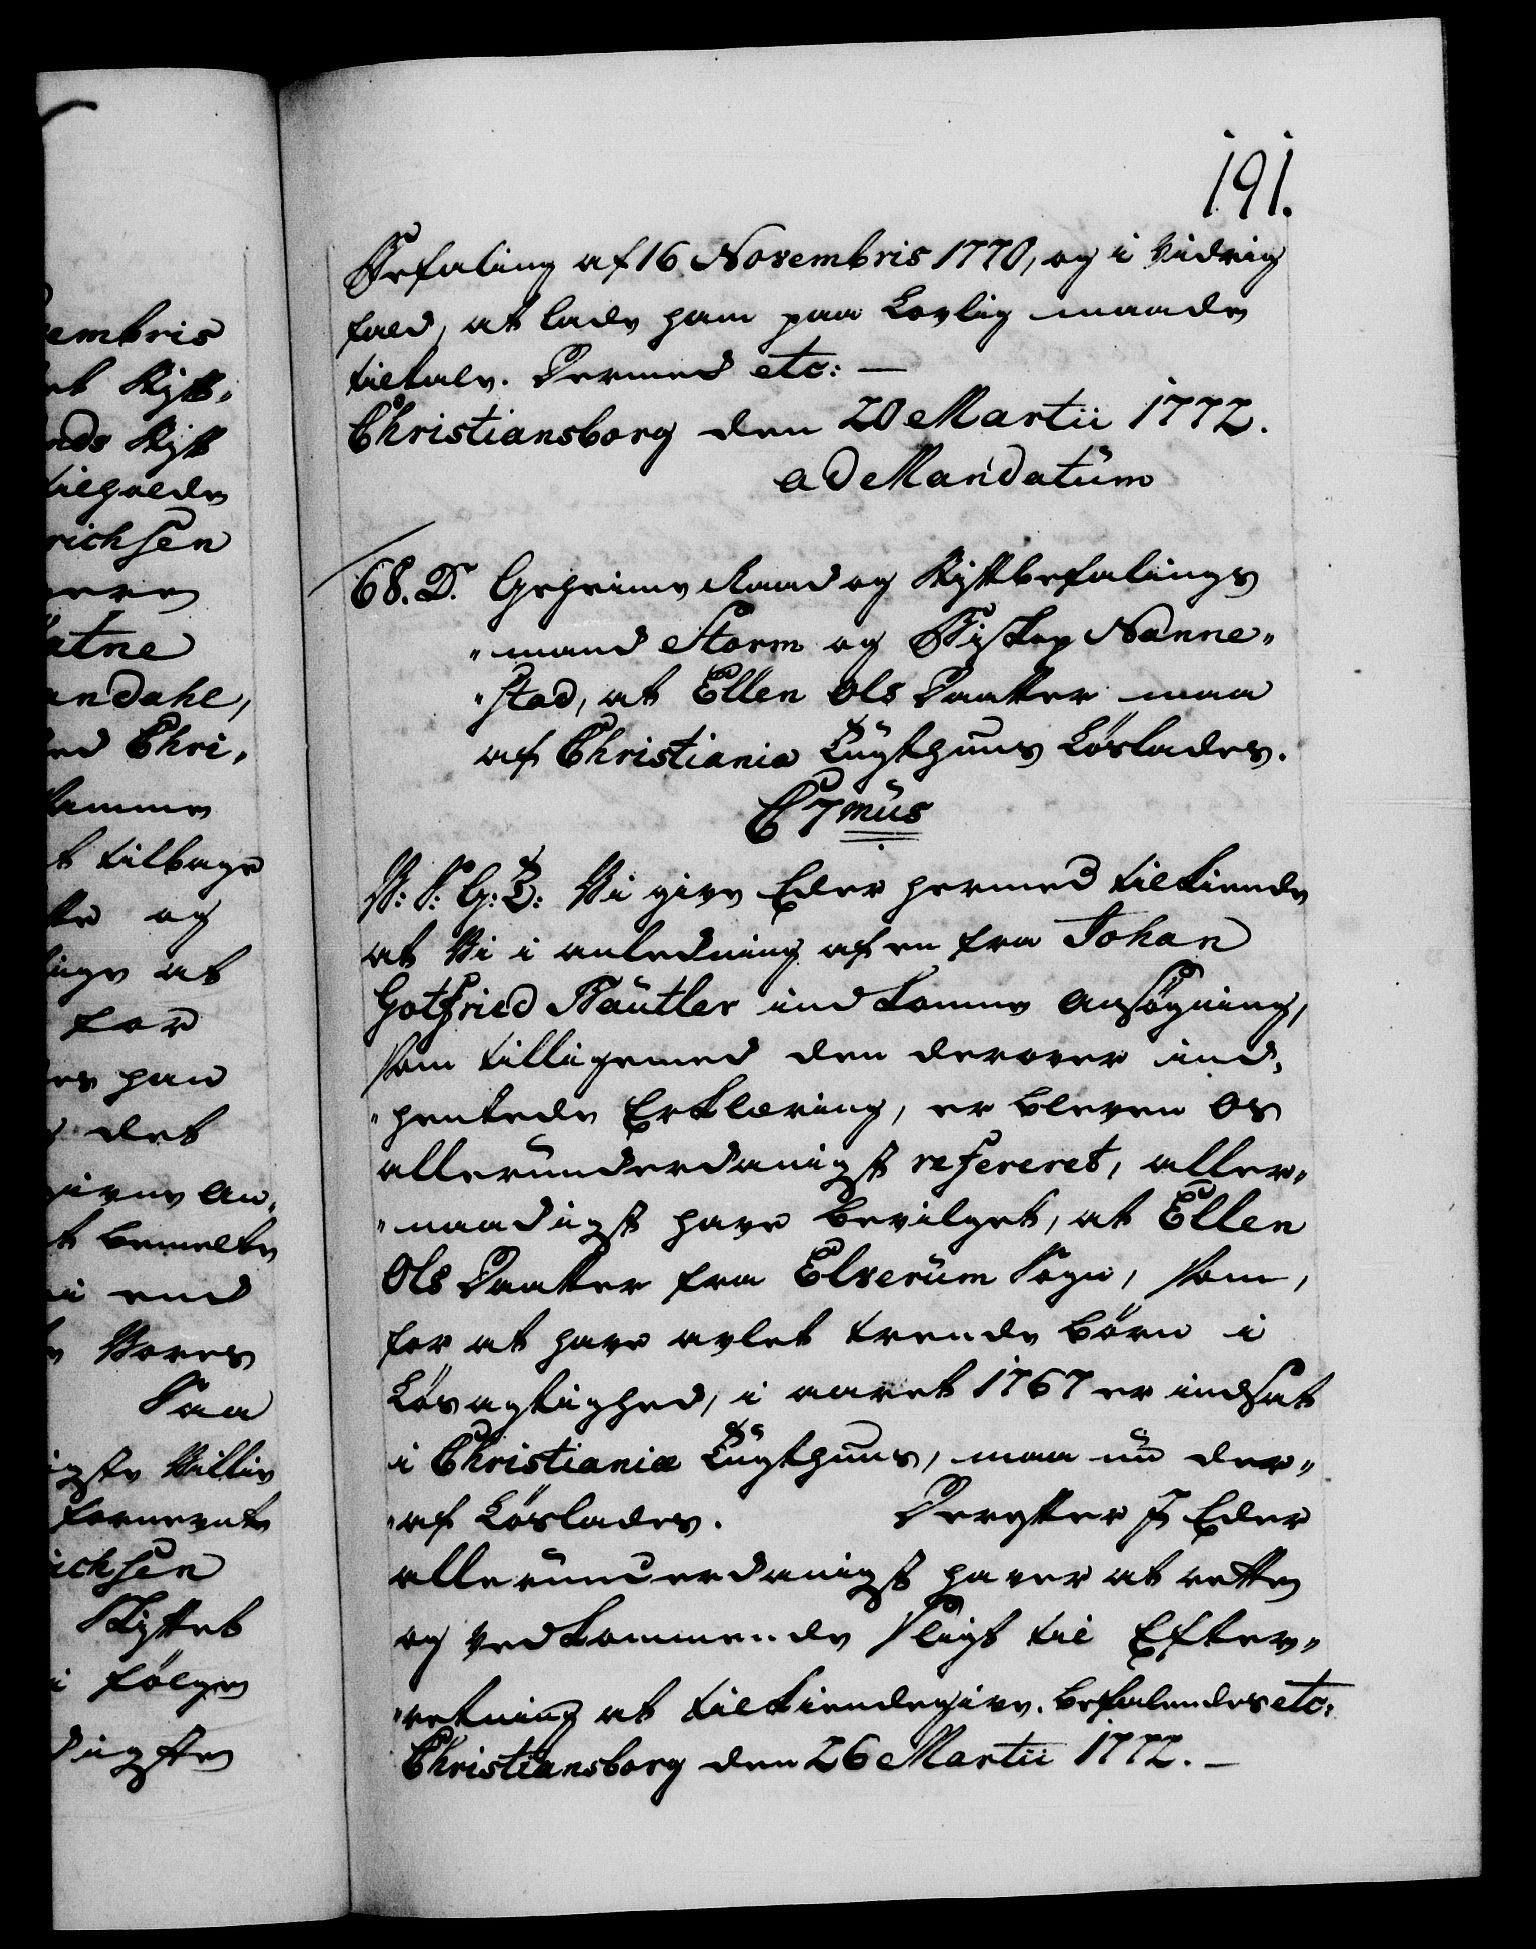 191.
Befaling af 16 Novembris 1770, og i vidrig
fald, at lade ham paa Lovlig maade
tiltale. Dermed etc: —
Christiansborg den 20 Martii 1772.
ad Mandatum
68. D. Geheime Raad og Stiftbefalings
"mand Storm og Biskop Nanne"
"stad, at Ellen Ols Daatter maa
af Christiania Tugthuus Løslades.
C 7mus
V: S: G: T: Vi give Eder hermed tilkiende
at Vi i anledning af en fra Johan
Gotfried Bäutler indkomne Ansøgning,
som tilligemed den derover ind,
"hentede Erklæring, er bleven Os
allerunderdanigst refereret, aller"
"naadigst have bevilget, at Ellen
Ols Daatter fra Elverum Sogn, som,
for at have avlet trende børn i
Løsagtighed, i aaret 1767 er indsat
i Christiania Tugthuus, maa nu der"
"af Løslades. Derefter I Eder
allerunderdanigst haver at rette
og vedkommende sligt til Efter"
"retning at tilkiendegive. befalendes etc:
Christiansborg den 26 Martii 1772. —
embris
et Stift,
nds Stift
tilholde
richsen
atne
andahl,
ed Chri,
samme
t tilbage
og
at
for
det
givne An,
t bemelte
i end
Vores
Saa
igste Villie
fornevnte
ichsen
Skiftet
i følge
digste